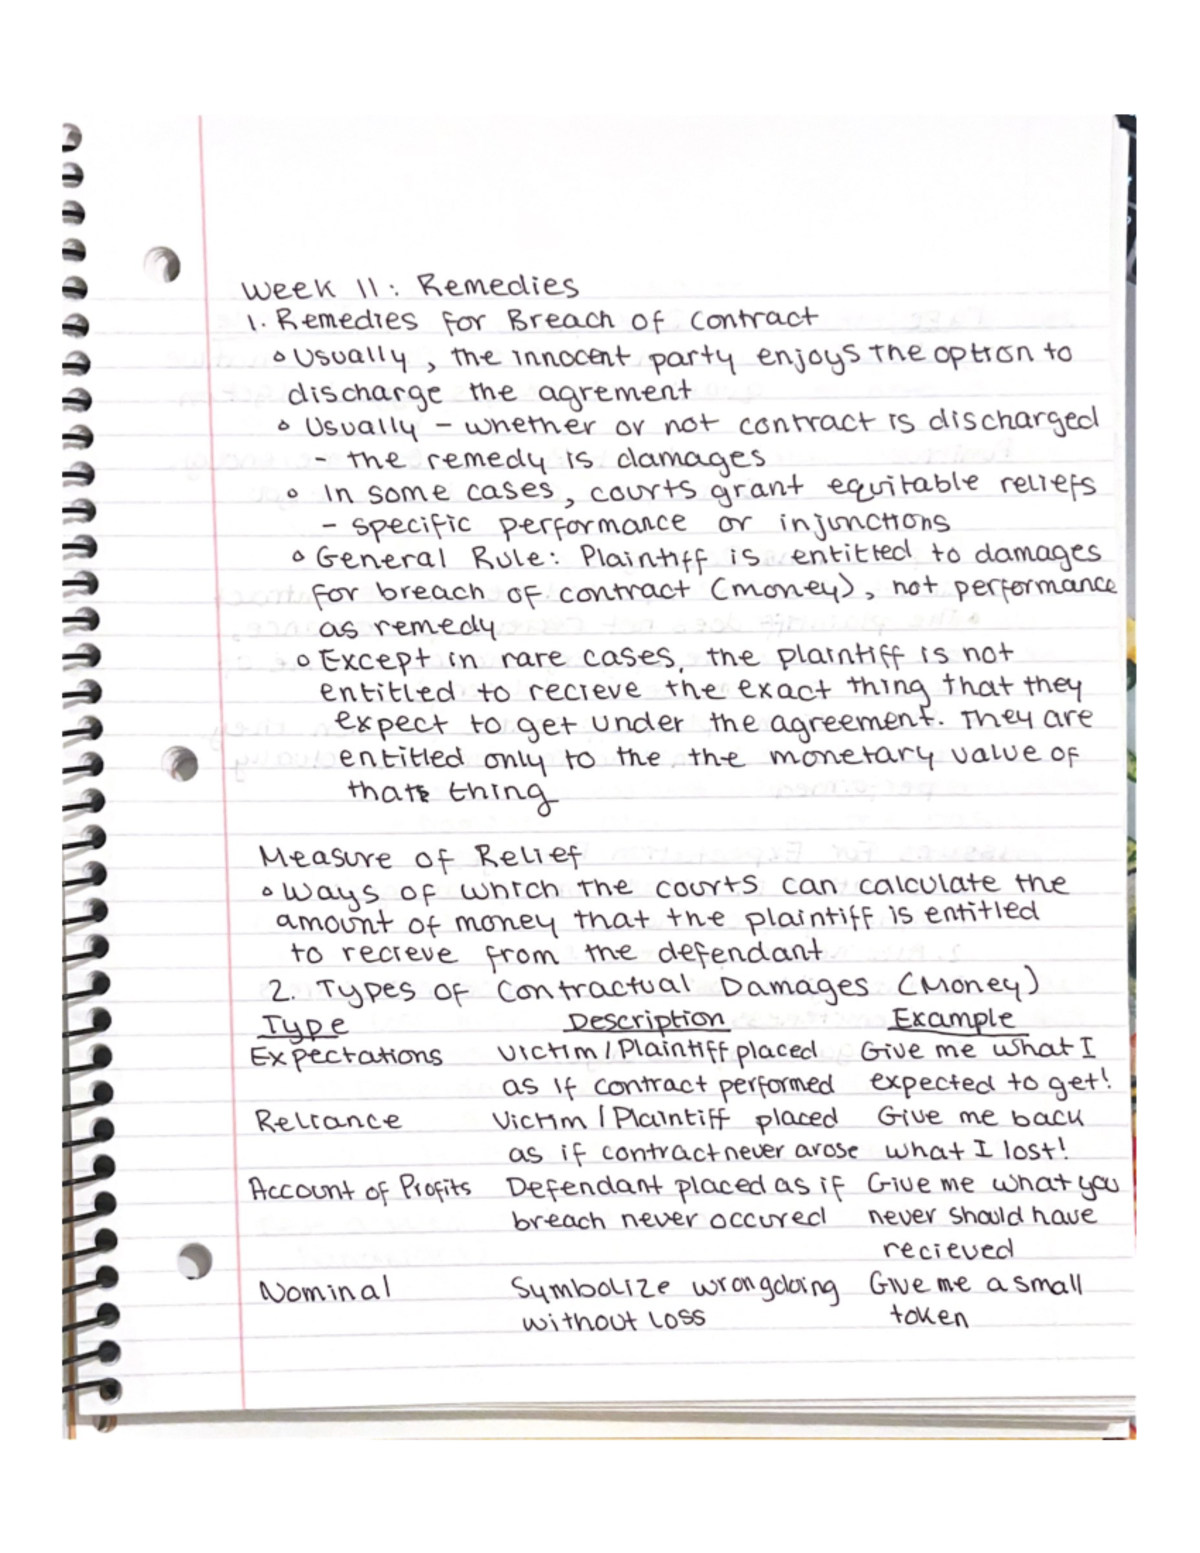 Week 11: Remedies
1. Remedies for Breach of Contract
Usually, the innocent party enjoys the option to
discharge the agrement
Usually - whether or not contract is discharged
- the remedy is damages
In some cases, courts grant equitable reliefs
- specific performance or injunctions
General Rule: Plaintiff is entitled to damages
for breach of contract (money), not performance
as remedy
Except in rare cases, the plaintiff is not
entitled to recieve the exact thing that they
expect to get under the agreement. They are
entitled only to the the monetary value of
that thing
Measure of Relief
Ways of which the courts can calculate the
amount of money that the plaintiff is entitled
to recieve from the defendant
2. Types of Contractual Damages (Money)
Type Description Example
Expectations Victim/Plaintiff placed Give me what I
as if contract performed expected to get!
Reliance Victim/Plaintiff placed Give me back
as if contract never arose what I lost!
Account of Profits Defendant placed as if Give me what you
breach never occured never should have
recieved
Nominal Symbolize wrongdoing Give me a small
without loss token